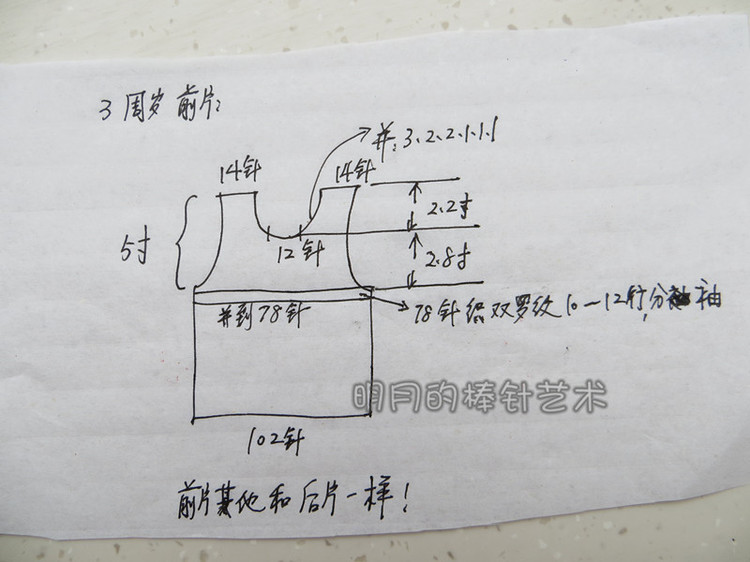 3周岁前片:
并:3.2.2.1.1.1
14针
14针
5寸
12针
2.2寸
2.8寸
并到78针
78针织双罗纹10—12行,分袖
明月的棒针艺术
102针
前片其他和后片一样!